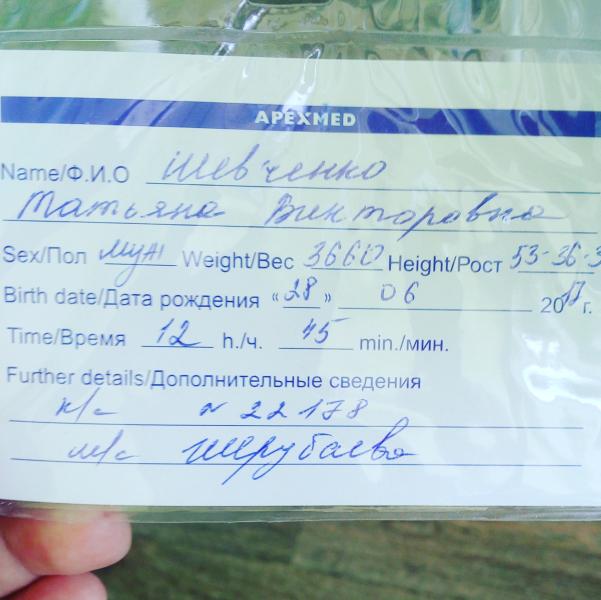 APEXMED
Name/Ф.И.О Шевченко
Татьяна Викторовна
Sex/Пол муж Weight/Вес 3660 Height/Рост 53-36-3
Birth date/Дата рождения «28» 06 2017 г.
Time/Время 12 h./ч. 45 min./мин.
Further details/Дополнительные сведения
и/б N 22178
м/с Шерубаева